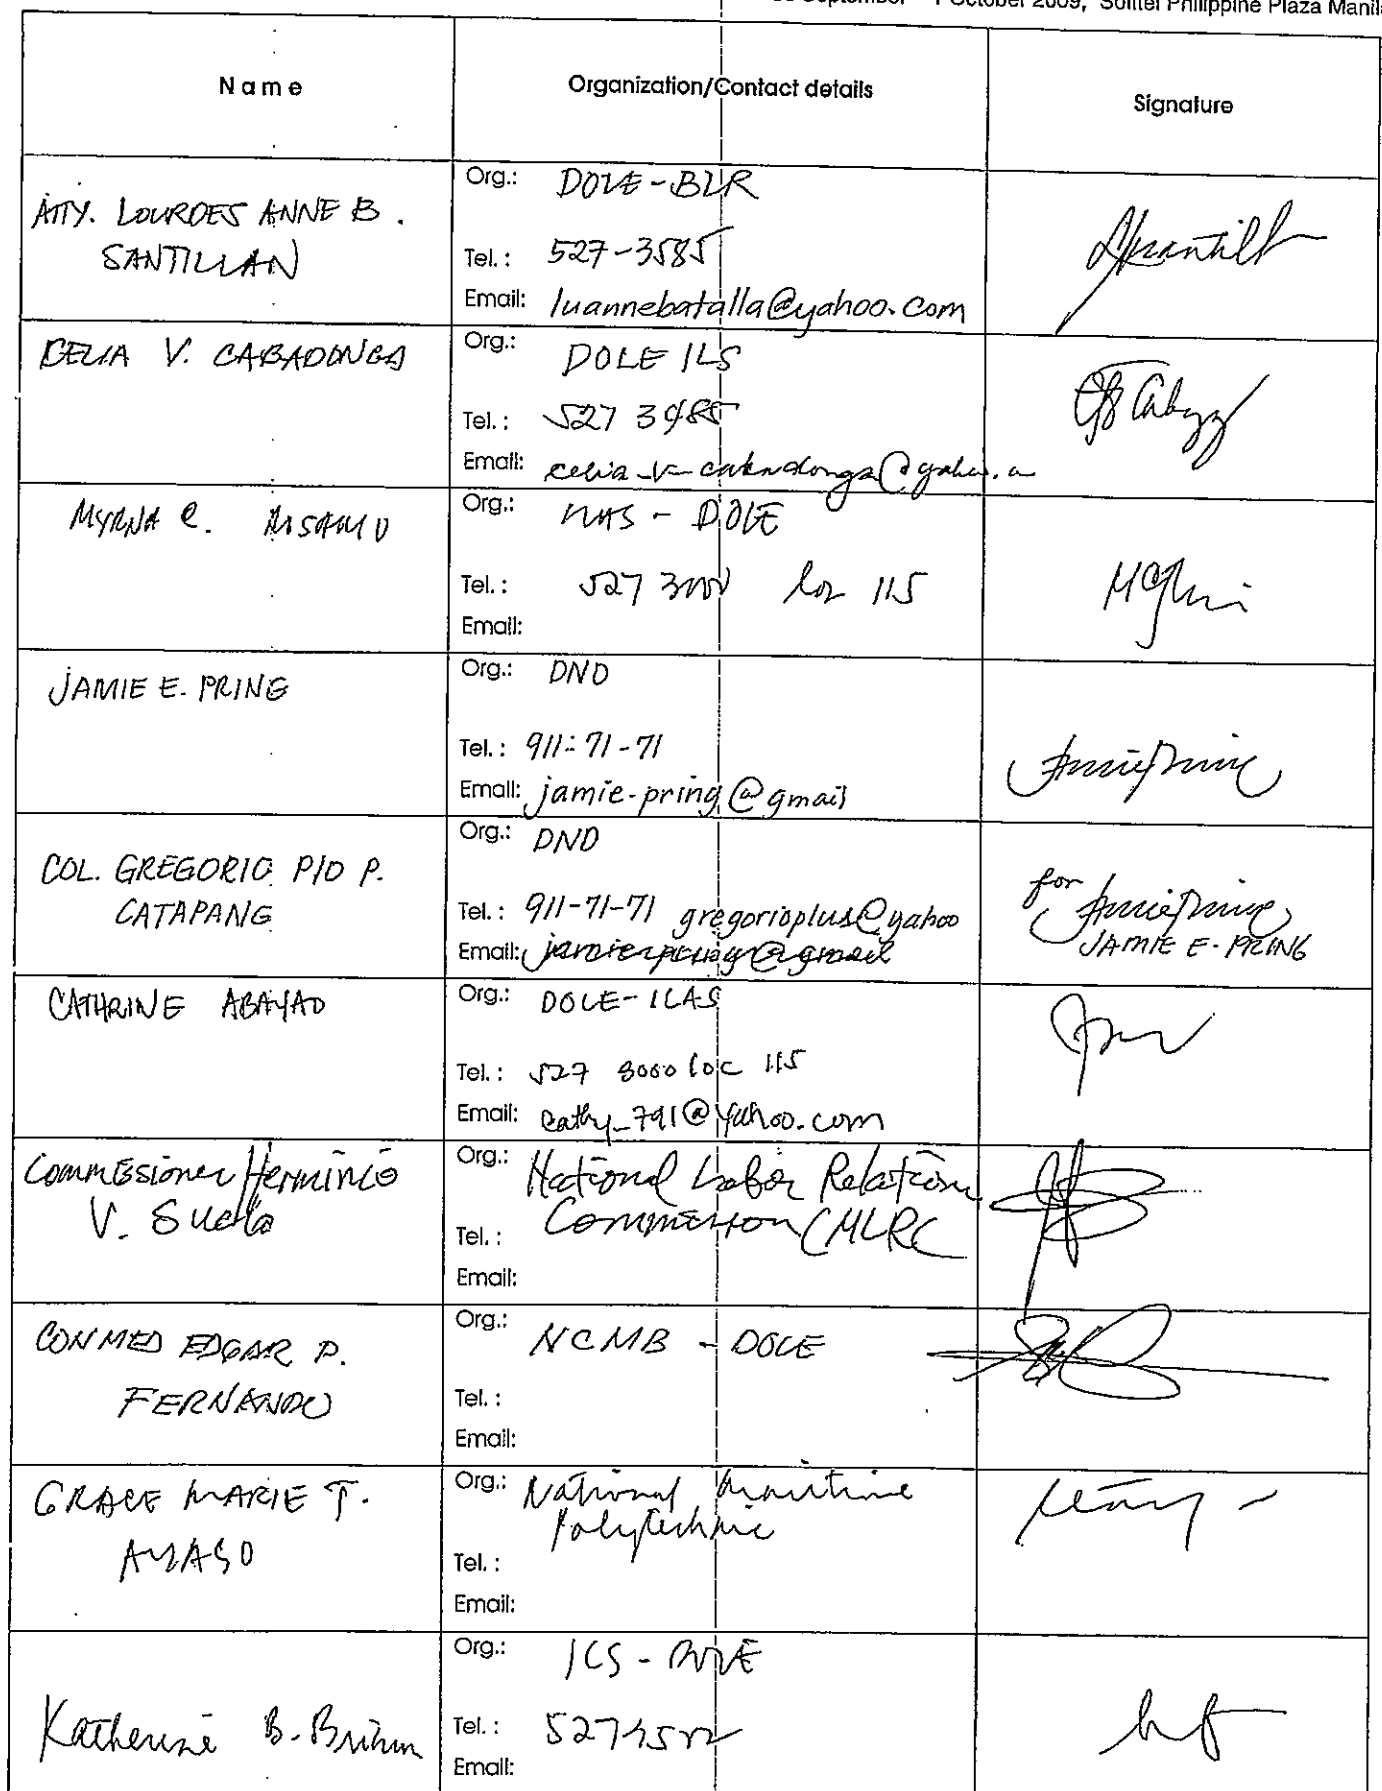 1 October 2009, Sofitel Philippine Plaza Manil
Name
Organization/Contact details
Signature
ATTY. LOURDES ANNE B.
SANTILLAN
Org.: DOLE-BLR
Tel.: 527-3585
Email: luannebatalla@yahoo.com
CELIA V. CABADONGA
Org.: DOLE ILS
Tel.: 527 3485
Email:
MYRNA C.
Org.: - DOLE
Tel.: 527 3000 loc 115
Email:
JAMIE E. PRING
Org.: DND
Tel.: 911-71-71
Email: jamie.pring@gmail
COL. GREGORIO PIO P.
CATAPANG
Org.: DND
Tel.: 911-71-71 gregorioplus@yahoo
Email:
for
JAMIE E. PRING
CATHRINE ABAYAO
Org.: DOLE-ILAS
Tel.: 527 3000 loc 115
Email: cathy_791@yahoo.com
Commissioner Herminio
V. Suelo
Org.: National Labor Relations
Commission (NLRC
Tel.:
Email:
CONMED EDGAR P.
FERNANDO
Org.: NCMB - DOLE
Tel.:
Email:
GRACE MARIE T.
Org.: National Maritime
Polytechnic
Tel.:
Email:
Katherine B.
Org.: - DOLE
Tel.:
Email: